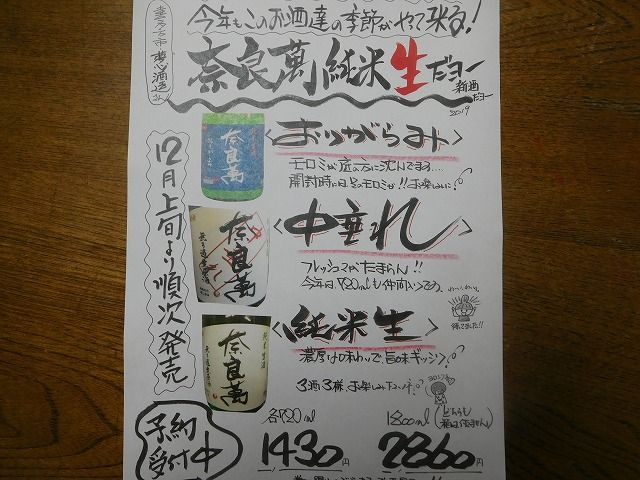 喜多方市 夢心酒造さん
今年もこのお酒達の季節がやって来る!
奈良萬純米生だヨー
新酒だヨー
2019
12月上旬より順次発売
<おりがらみ>
モロミが底の方に沈んでまる...
奈良萬
<中垂れ>
フレッシュでたまらん!!
今年は720mlも仲間入りです。
待ってました!!
奈良萬
<純米生>
濃厚な味わいで、旨味ギッシリ!
3酒3様、お楽しみ下さい!
奈良萬
予約受付中
各720ml
1430円
1800ml
2860円